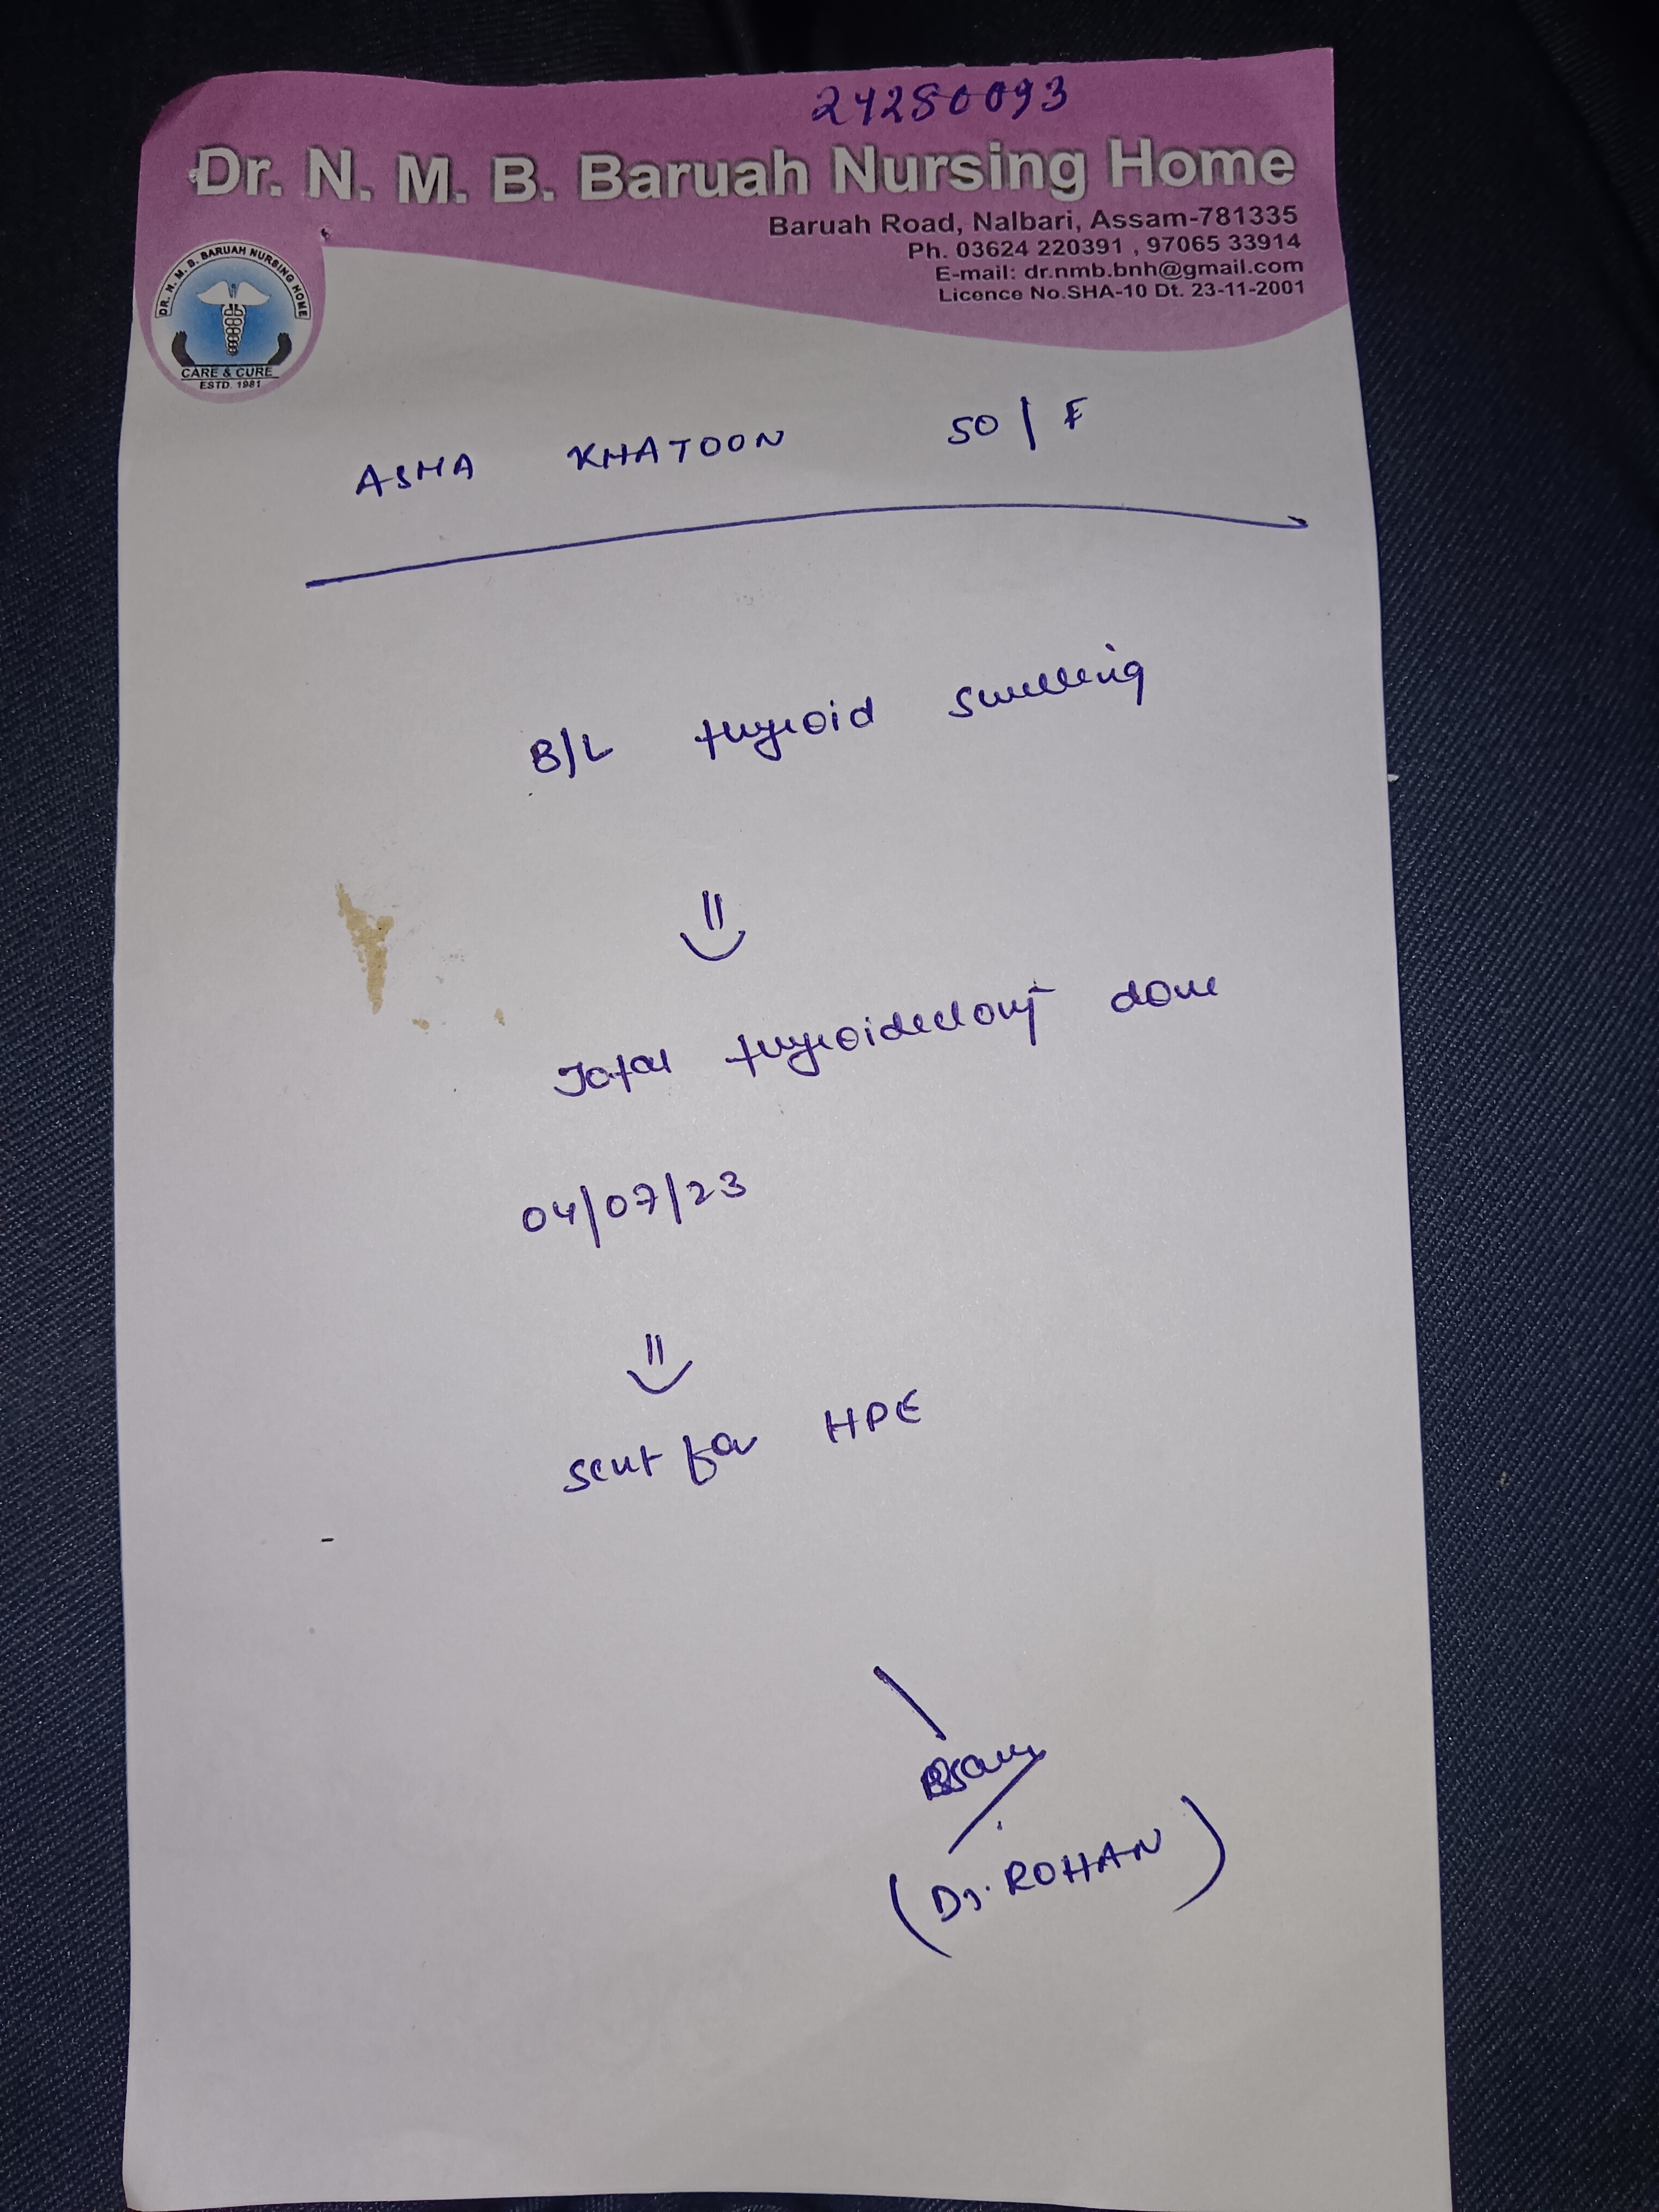 24280093
Dr. N. M. B. Baruah Nursing Home
Baruah Road, Nalbari, Assam-781335
Ph. 03624 220391 , 97065 33914
E-mail: dr.nmb.bnh@gmail.com
Licence No.SHA-10 Dt. 23-11-2001
DR. N. M. B. BARUAH NURSING HOME
CARE & CURE
ESTD. 1981
ASHA KHATOON 50/F
B/L thyroid swelling
Total thyroidectomy done
04/07/23
sent for HPE
(Dr. ROHAN)